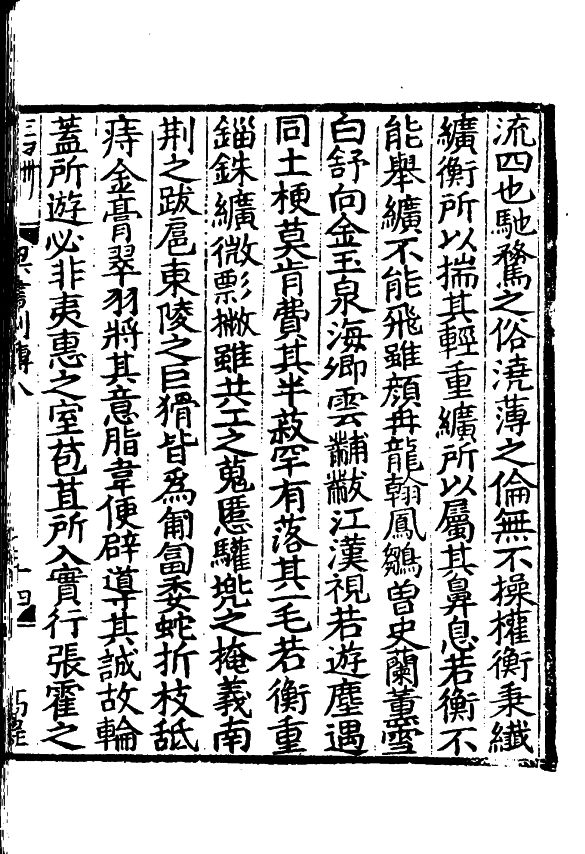 流四也馳騖之俗澆薄之倫無不操權衡秉纖
纊衡所以揣其輕重纊所以屬其鼻息若衡不
能舉纊不能飛雖顏冉龍翰鳳鶵曾史蘭薰雪
白舒向金玉泉海卿雲黼黻江漢視若遊塵遇
同土梗莫肯費其半菽罕有落其一毛若衡重
錙銖纊微彯撇雖共工之蒐慝驩兜之掩義南
荆之跋扈東陵之巨猾皆爲匍匐委蛇折枝舐
痔金膏翠羽將其意脂韋便辟導其誠故輪
蓋所遊必非夷惠之室苞苴所入實行張霍之
列傳八
十四